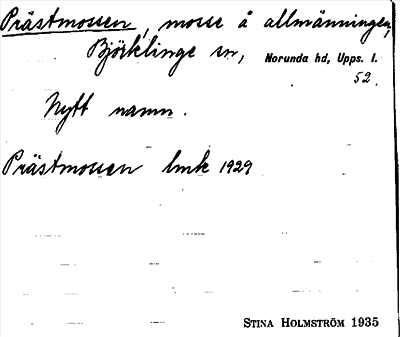 Prästmossen, mosse å allmänningen,
Björklinge sn, Norunda hd, Upps. l.
52.
Nytt namn.
Prästmossen lmk 1929
STINA HOLMSTRÖM 1935